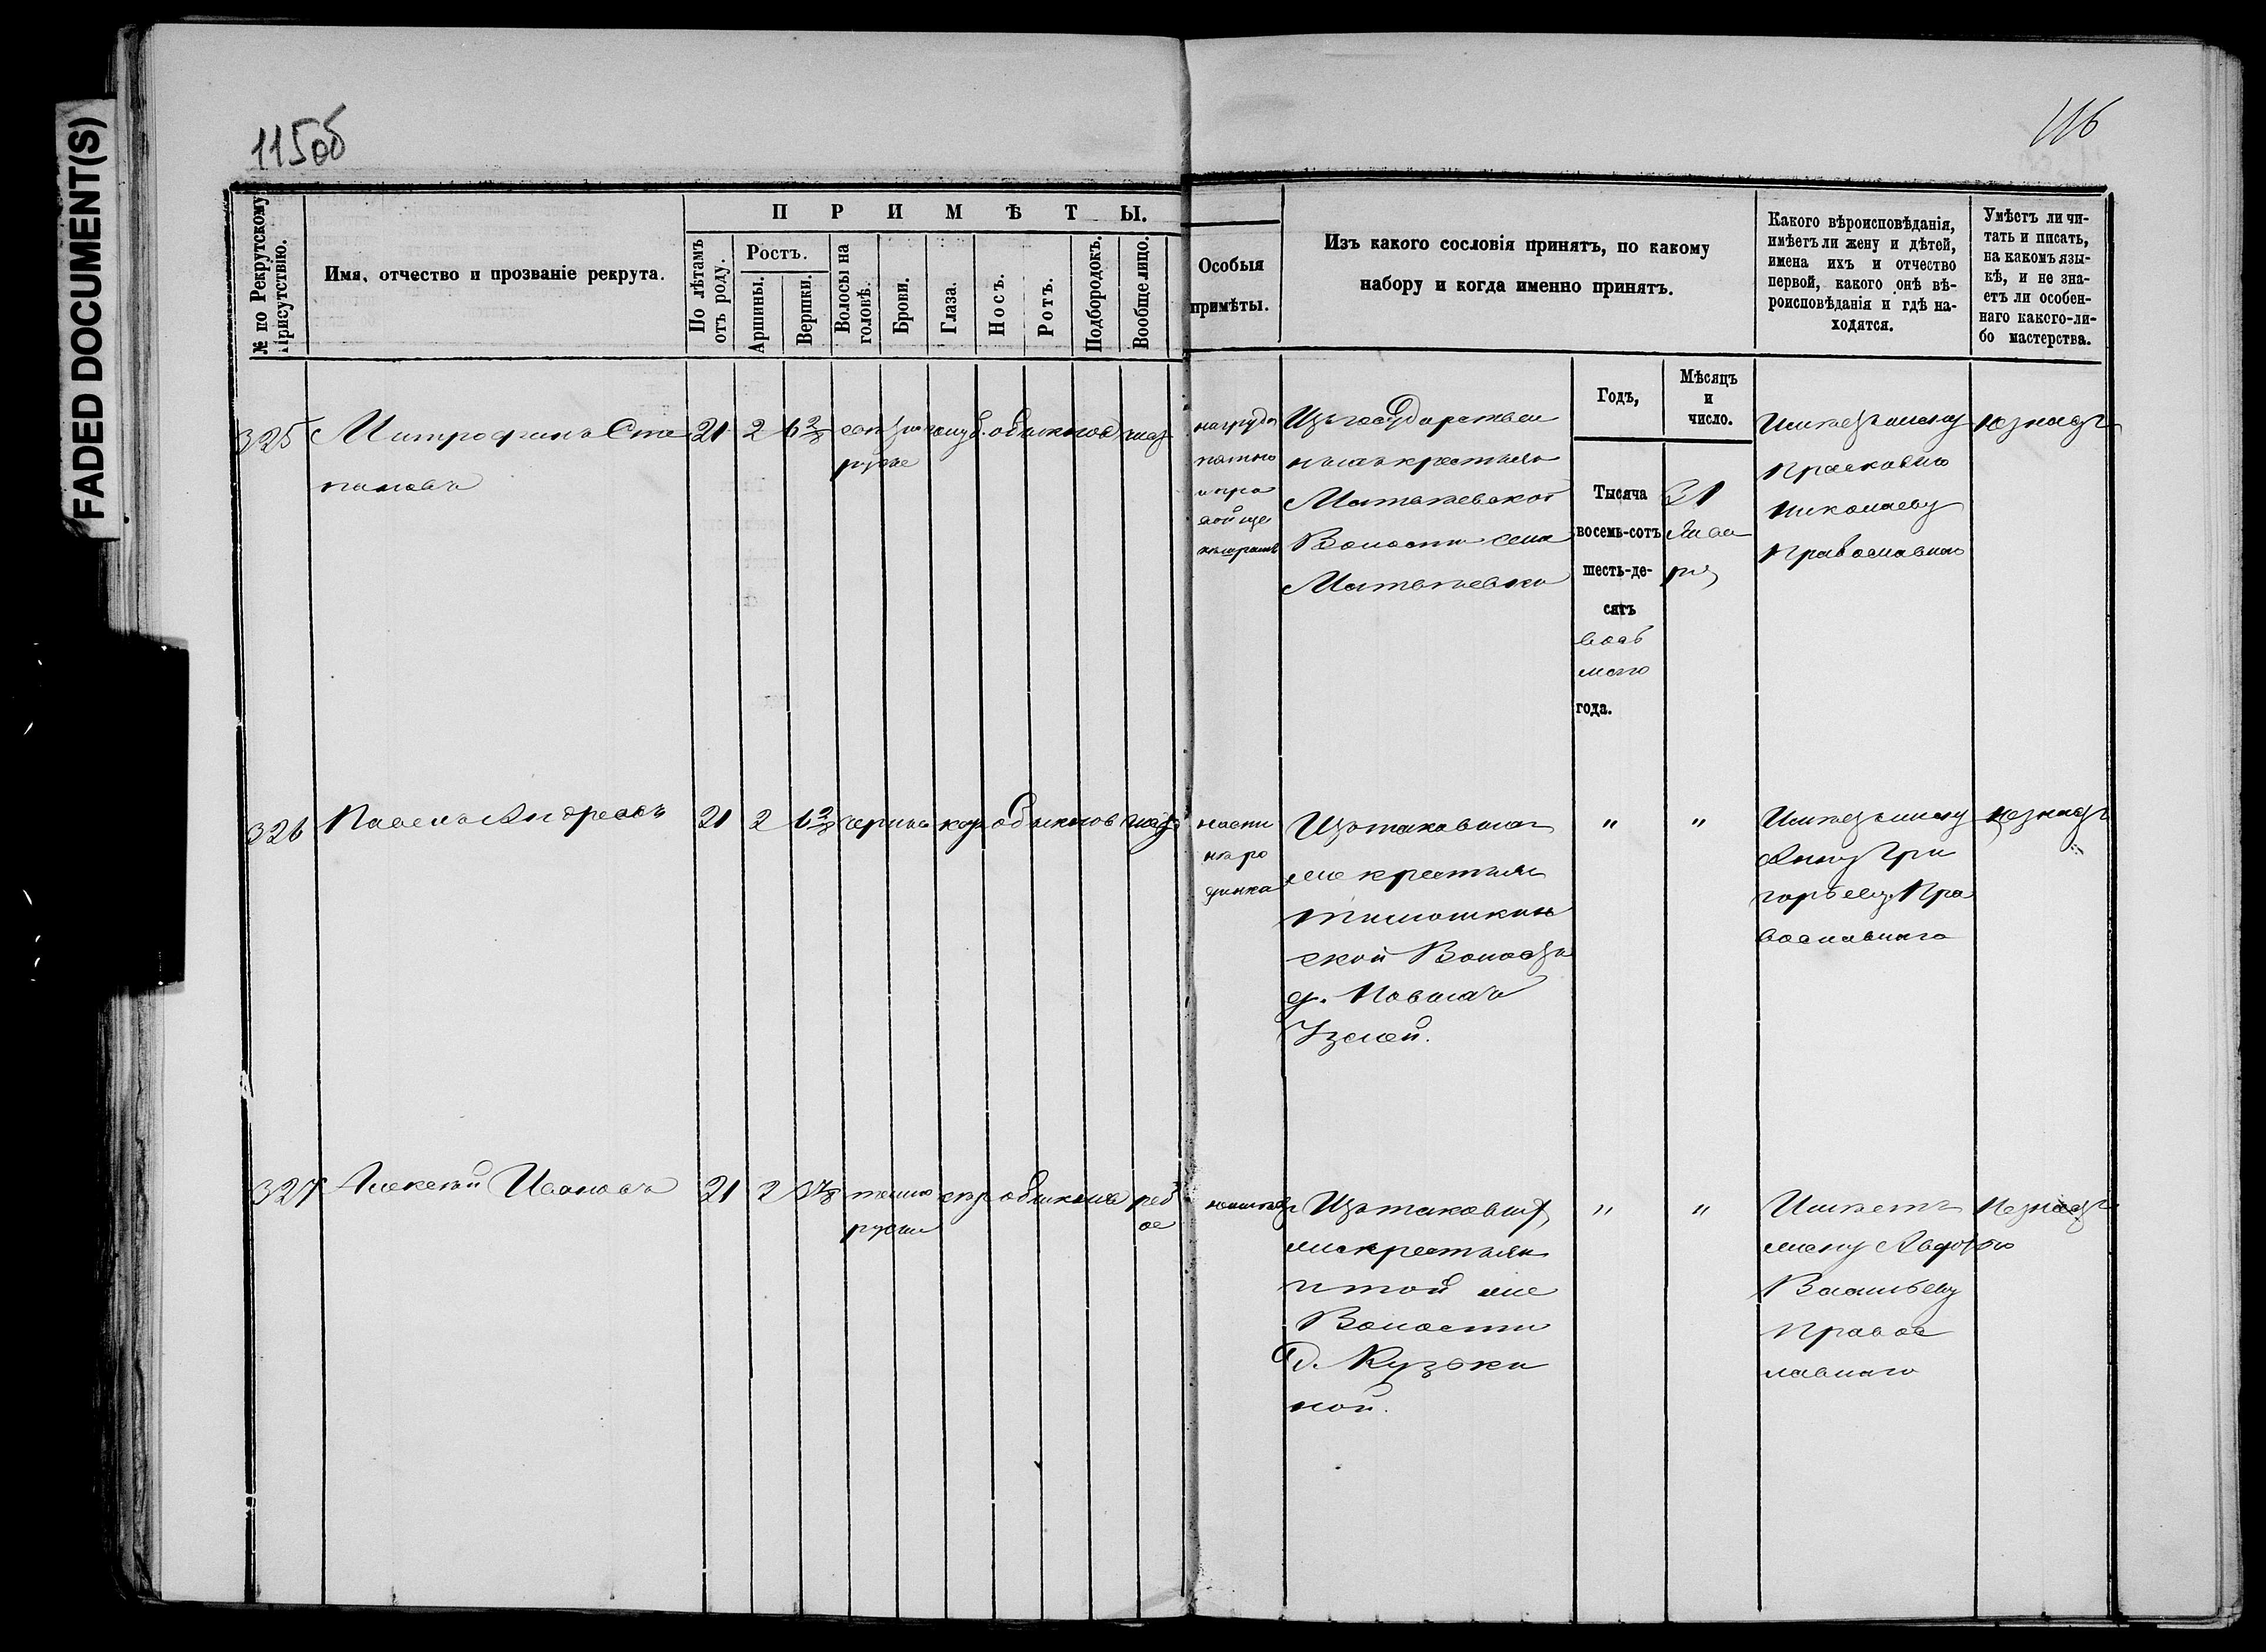 FADED DOCUMENT(S)
115об
116
№ по Рекрутскому Присутствію.
Имя, отчество и прозваніе рекрута.
ПРИМѢТЫ.
По лѣтамъ отъ роду.
Ростъ.
Аршины.
Вершки.
Волосы на головѣ.
Брови.
Глаза.
Носъ.
Ротъ.
Подбородокъ.
Вообще лицо.
Особыя
примѣты.
Изъ какого сословія принятъ, по какому
набору и когда именно принятъ.
Какого вѣроисповѣданія,
имѣетъ ли жену и дѣтей,
имена ихъ и отчество
первой, какого онѣ вѣ-
роисповѣданія и гдѣ на-
ходятся.
Умѣетъ ли чи-
тать и писать,
на какомъ язы-
кѣ, и не зна-
етъ ли особен-
наго какого-ли-
бо мастерства.
Годъ,
Мѣсяцъ
и
число.
325 Митрофанъ Сте
пановъ
21 2 6 2/8 свѣтло голуб. обыкнов чист
русые
на груди
пятно
и пра
вой ще
кѣ шрамъ
Изъ государствен
ныхъ крестьянъ
Волости села
Тысяча
восемь-сотъ
шесть-де-
сятъ
вось
маго
года.
31
Янва
ря
Имѣетъ жену
Прасковью
Николаеву
Православную
незнаетъ
326 Павелъ Андреевъ
21 2 6 2/8 черные кар обыкнов чист
на спи
нѣ ро
динка
Изъ таковыхъ
же крестьян
Тимошкин
ской Волости
д. Новыхъ
Узелей.
" "
Имѣетъ жену
Анну Гри
горьеву Пра
вославнаго
незнаетъ
327 Алексѣй Ивановъ
21 2 3 7/8 темно сѣр обыкнове ряб
русые ое
неимѣетъ
Изъ таковыхъ
же крестьян
и той же
Волости
д. Кузьки
ной.
" "
Имѣетъ
жену Авдотью
Васильеву
Правос
лавнаго
Незнаетъ